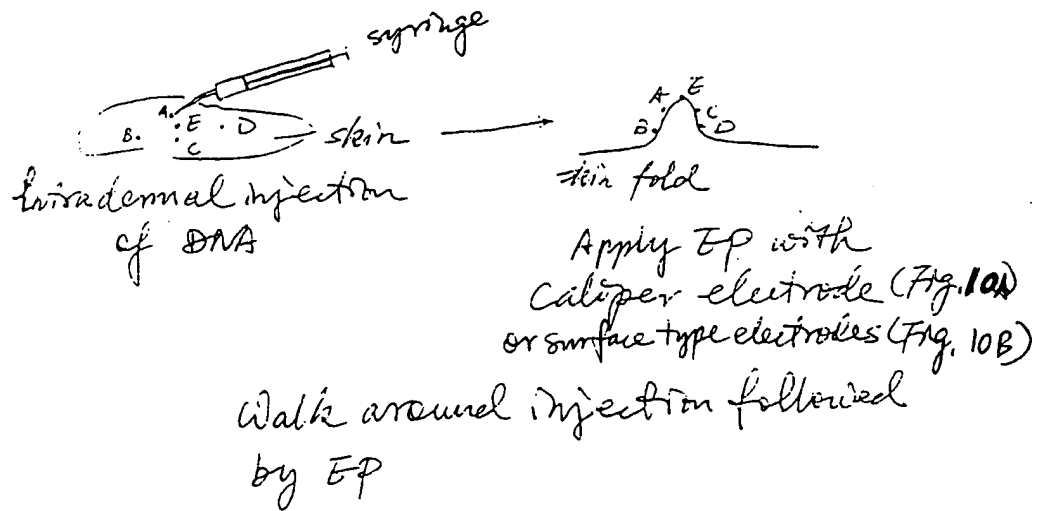 syringe
A.
B.
E
D
C
skin
Intradermal injection
of DNA
A
E
C
B
D
skin fold
Apply EP with
Caliper electrode (Fig. 10A)
or surface type electrodes (Fig. 10B)
Walk around injection followed
by EP